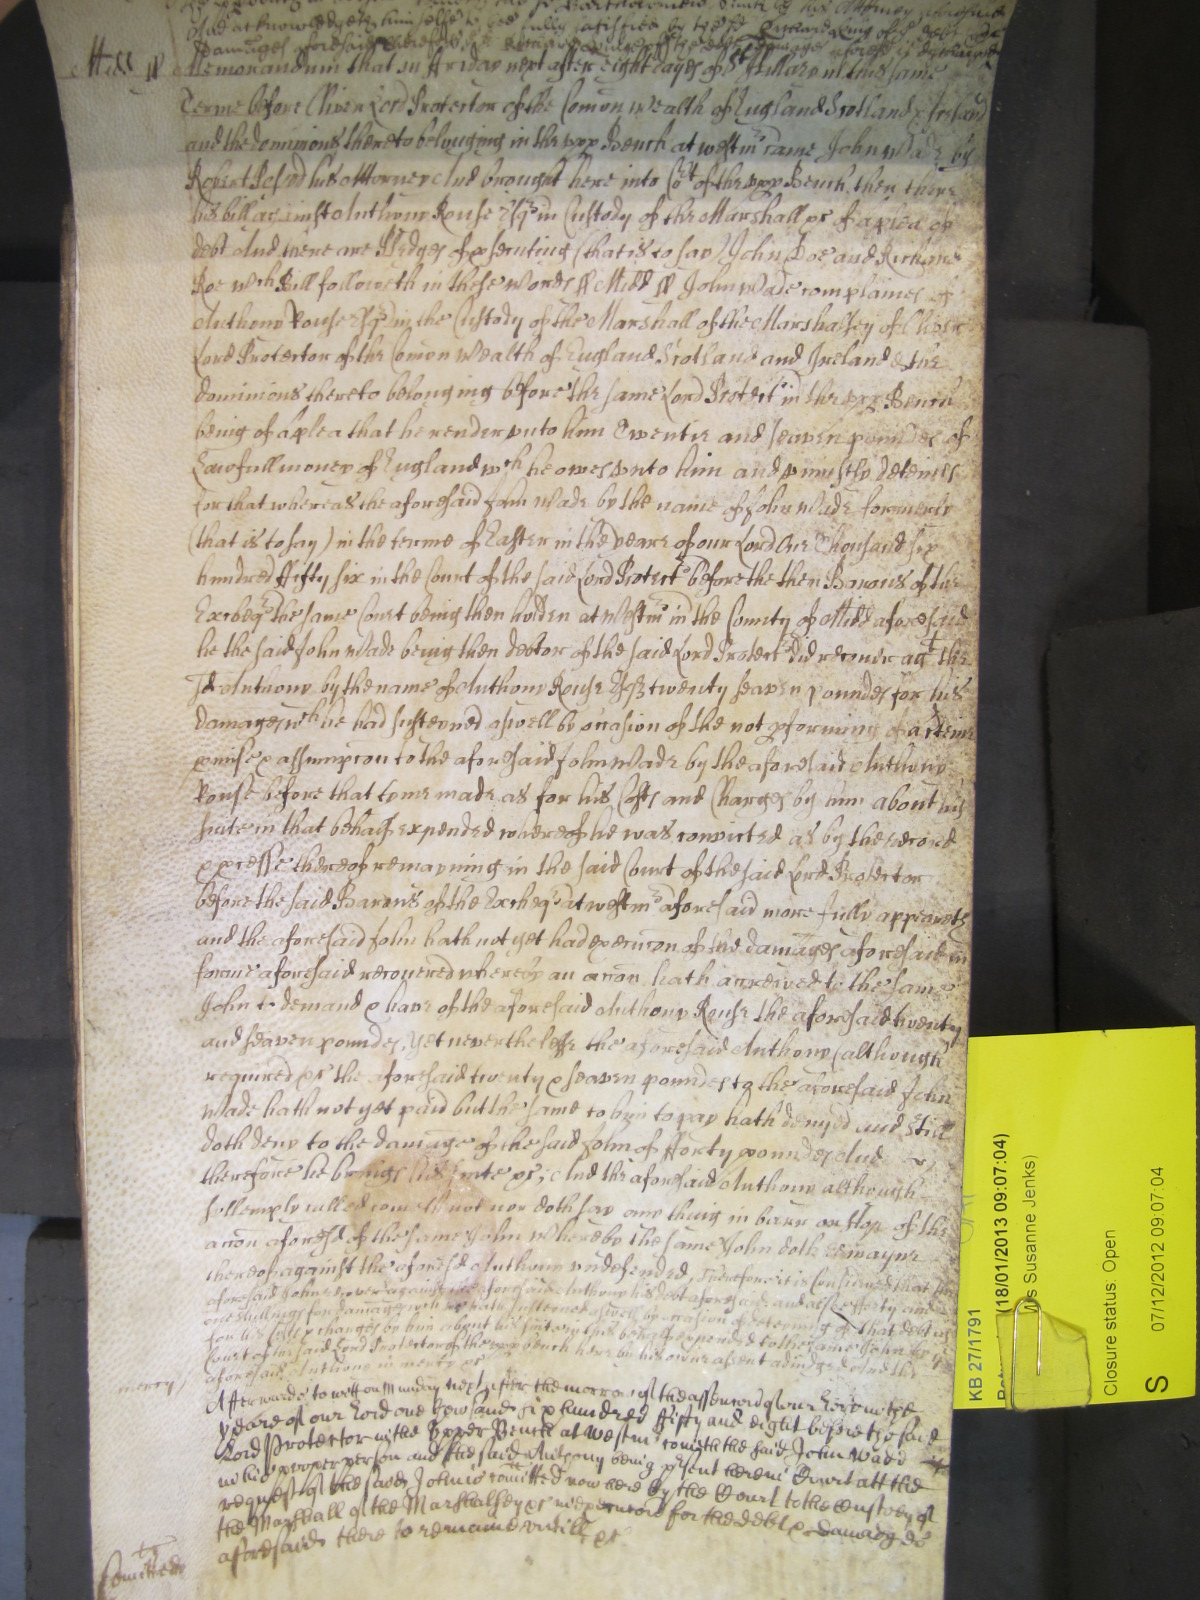 Midd ss Memorandum that on ffriday next after eight dayes of St Hillary in this same
Terme before Oliver Lord Protector of the Comon Wealth of England Scotland & Ireland
and the dominions thereto belonging in the vpp Bench at westmr came John Wade by
Robert his Attorney And brought here into Cort of the vpp Bench then there
his bill against Anthony Rouse Esqr in Custody of the Marshall &c of a plea of
debt And there are Pledges of prsecuting (that is to say) John Doe and Richard
Roe wch Bill followeth in these words ss Midd ss John Wade complaines of
Anthony Rouse Esqr in the Custody of the Marshall of the Marshalsey of Oliver
Lord Protector of the Comon Wealth of England Scotland and Ireland & the
dominions thereto belonging before the same Lord Protectr in the vpp Bench
being of a plea that he render vnto him Twentie and seaven poundes of
Lawfull money of England wch he owes vnto him and vniustly deteines
for that whereas the aforesaid John Wade by the name of John Wade formerly
(that is to say) in the terme of Easter in the yeare of our Lord One Thousand six
hundred ffifty six in the Court of the said Lord Protectr before the then Barons of the
Excheqr the same Court being then holden at Westmr in the County of Midd aforesaid
he the said John Wade being then debtor of the said Lord Protectr did recover agt the
sd Anthony by the name of Anthony Rouse Esqr twenty seaven poundes for his
damages wch he had susteyned aswell by occasion of the not pforming of a certeine
pmise & assumpcon to the aforesaid John Wade by the aforesaid Anthony
Rouse before that tyme made as for his Costs and Charges by him about his
suite in that behalfe expended whereof he was convicted as by the record
& prcesse thereof remayning in the said Court of the said Lord Protector
before the said Barons of the Excheqr at westmr aforesaid more fully appeareth
and the aforesaid John hath not yet had execucon of the damages aforesaid in
forme aforesaid recouered whereby an accon hath accrewed to the same
John to demand & have of the aforesaid Anthony Rouse the aforesaid twenty
and seaven poundes, yet neverthelesse the aforesaid Anthony (although
required &c the aforesaid twenty & seaven poundes to the aforesaid John
Wade hath not yet paid but the same to him to pay hath denyed and still
doth deny to the damage of the said John of fforty poundes And
therefore he brings his suite &c, And the aforesaid Anthony although
sollemply called cometh not nor doth say any thing in barr or stop of the
accon aforesd of the same John whereby the same John doth remayne
thereof against the aforesd Anthony vndefended, Therefore it is considered that the
aforesaid John recover against the aforesaid Anthony his debt aforesaid and alsoe fforty and
one shillings for damages wch he hath susteyned aswell by occasion of deteyning of that debt as
for his Costs & charges by him about his suite in this behalf expended to the same John by the
Court of the said Lord Protector of the vpp bench here by his owne assent adiudged And the
aforesaid Anthony in mercy &c
mercy
Afterwards to witt on Munday next after the morrow of the assention of our Lord in the
yeare of our Lord one thowsand six hundred ffifty and eight before the said
Lord Protector in the Vpper Bench at Westmr cometh the said John Wade
in his proper person and the said Anthony being psent here in Court att the
request of the said John is comitted now here by the Court to the Custody of
the Marshall of the Marshalsey &c in execucon for the debt & damages
aforesaid there to remaine vntill &c
Comittitr
KB 27/1791
(18/01/2013 09:07:04)
Ms Susanne Jenks)
Closure status: Open
S 07/12/2012 09:07:04